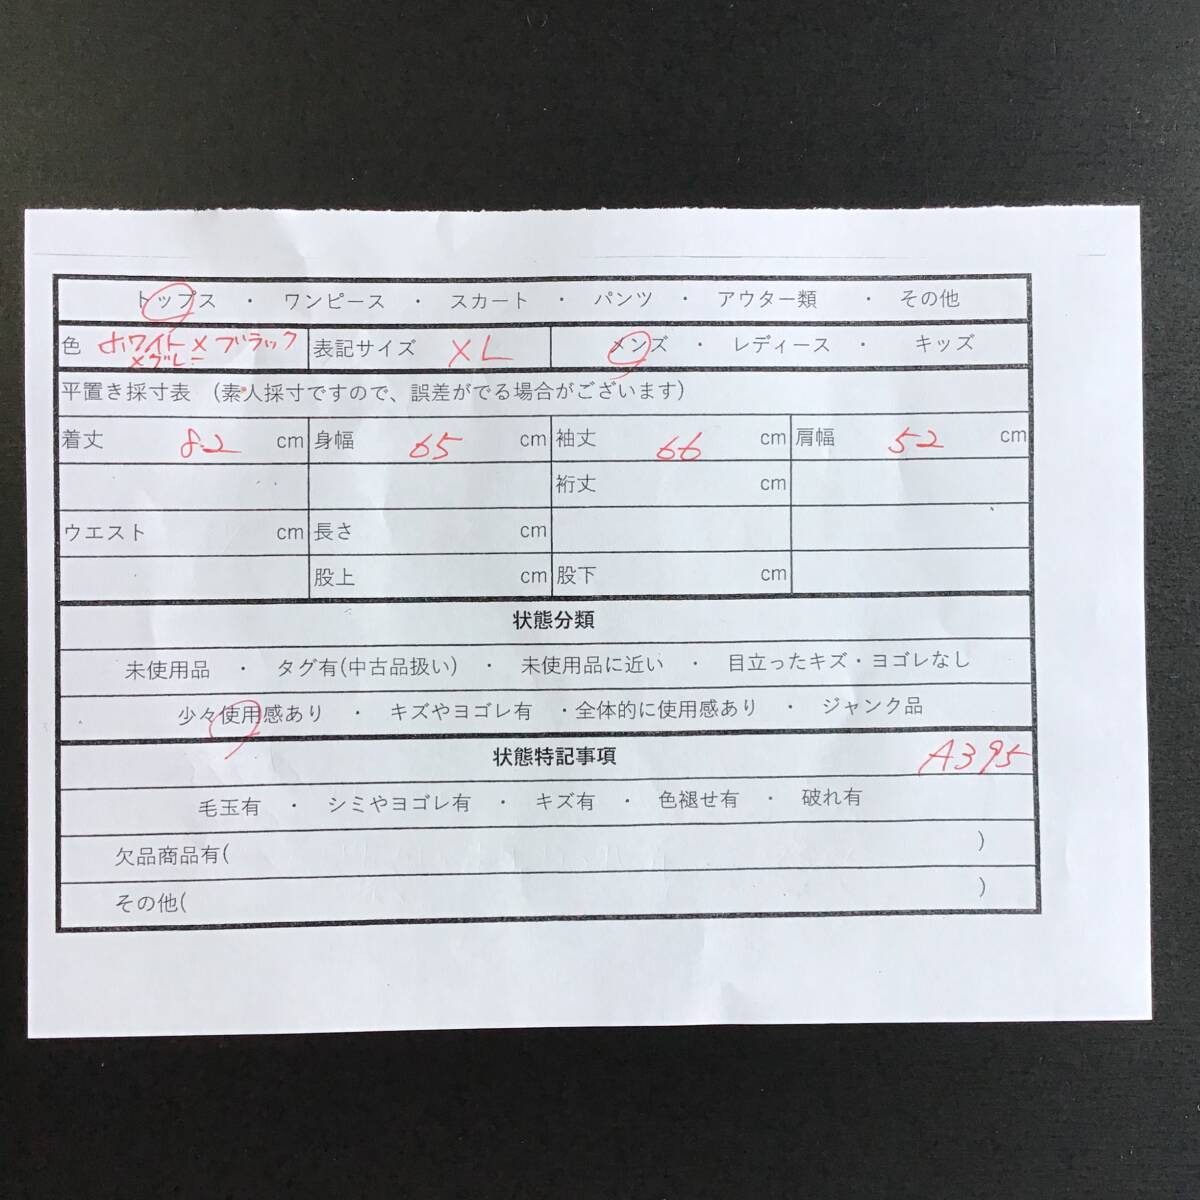 トップス ・ ワンピース ・ スカート ・ パンツ ・ アウター類 ・ その他
色 ホワイト×ブラック 表記サイズ XL メンズ ・ レディース ・ キッズ
×グレー
平置き採寸表 (素人採寸ですので、誤差がでる場合がございます)
着丈 82 cm 身幅 65 cm 袖丈 66 cm 肩幅 52 cm
裄丈 cm
ウエスト cm 長さ cm
股上 cm 股下 cm
状態分類
未使用品 ・ タグ有(中古品扱い) ・ 未使用品に近い ・ 目立ったキズ・ヨゴレなし
少々使用感あり ・ キズやヨゴレ有 ・全体的に使用感あり ・ ジャンク品
状態特記事項 A395
毛玉有 ・ シミやヨゴレ有 ・ キズ有 ・ 色褪せ有 ・ 破れ有
欠品商品有( )
その他( )